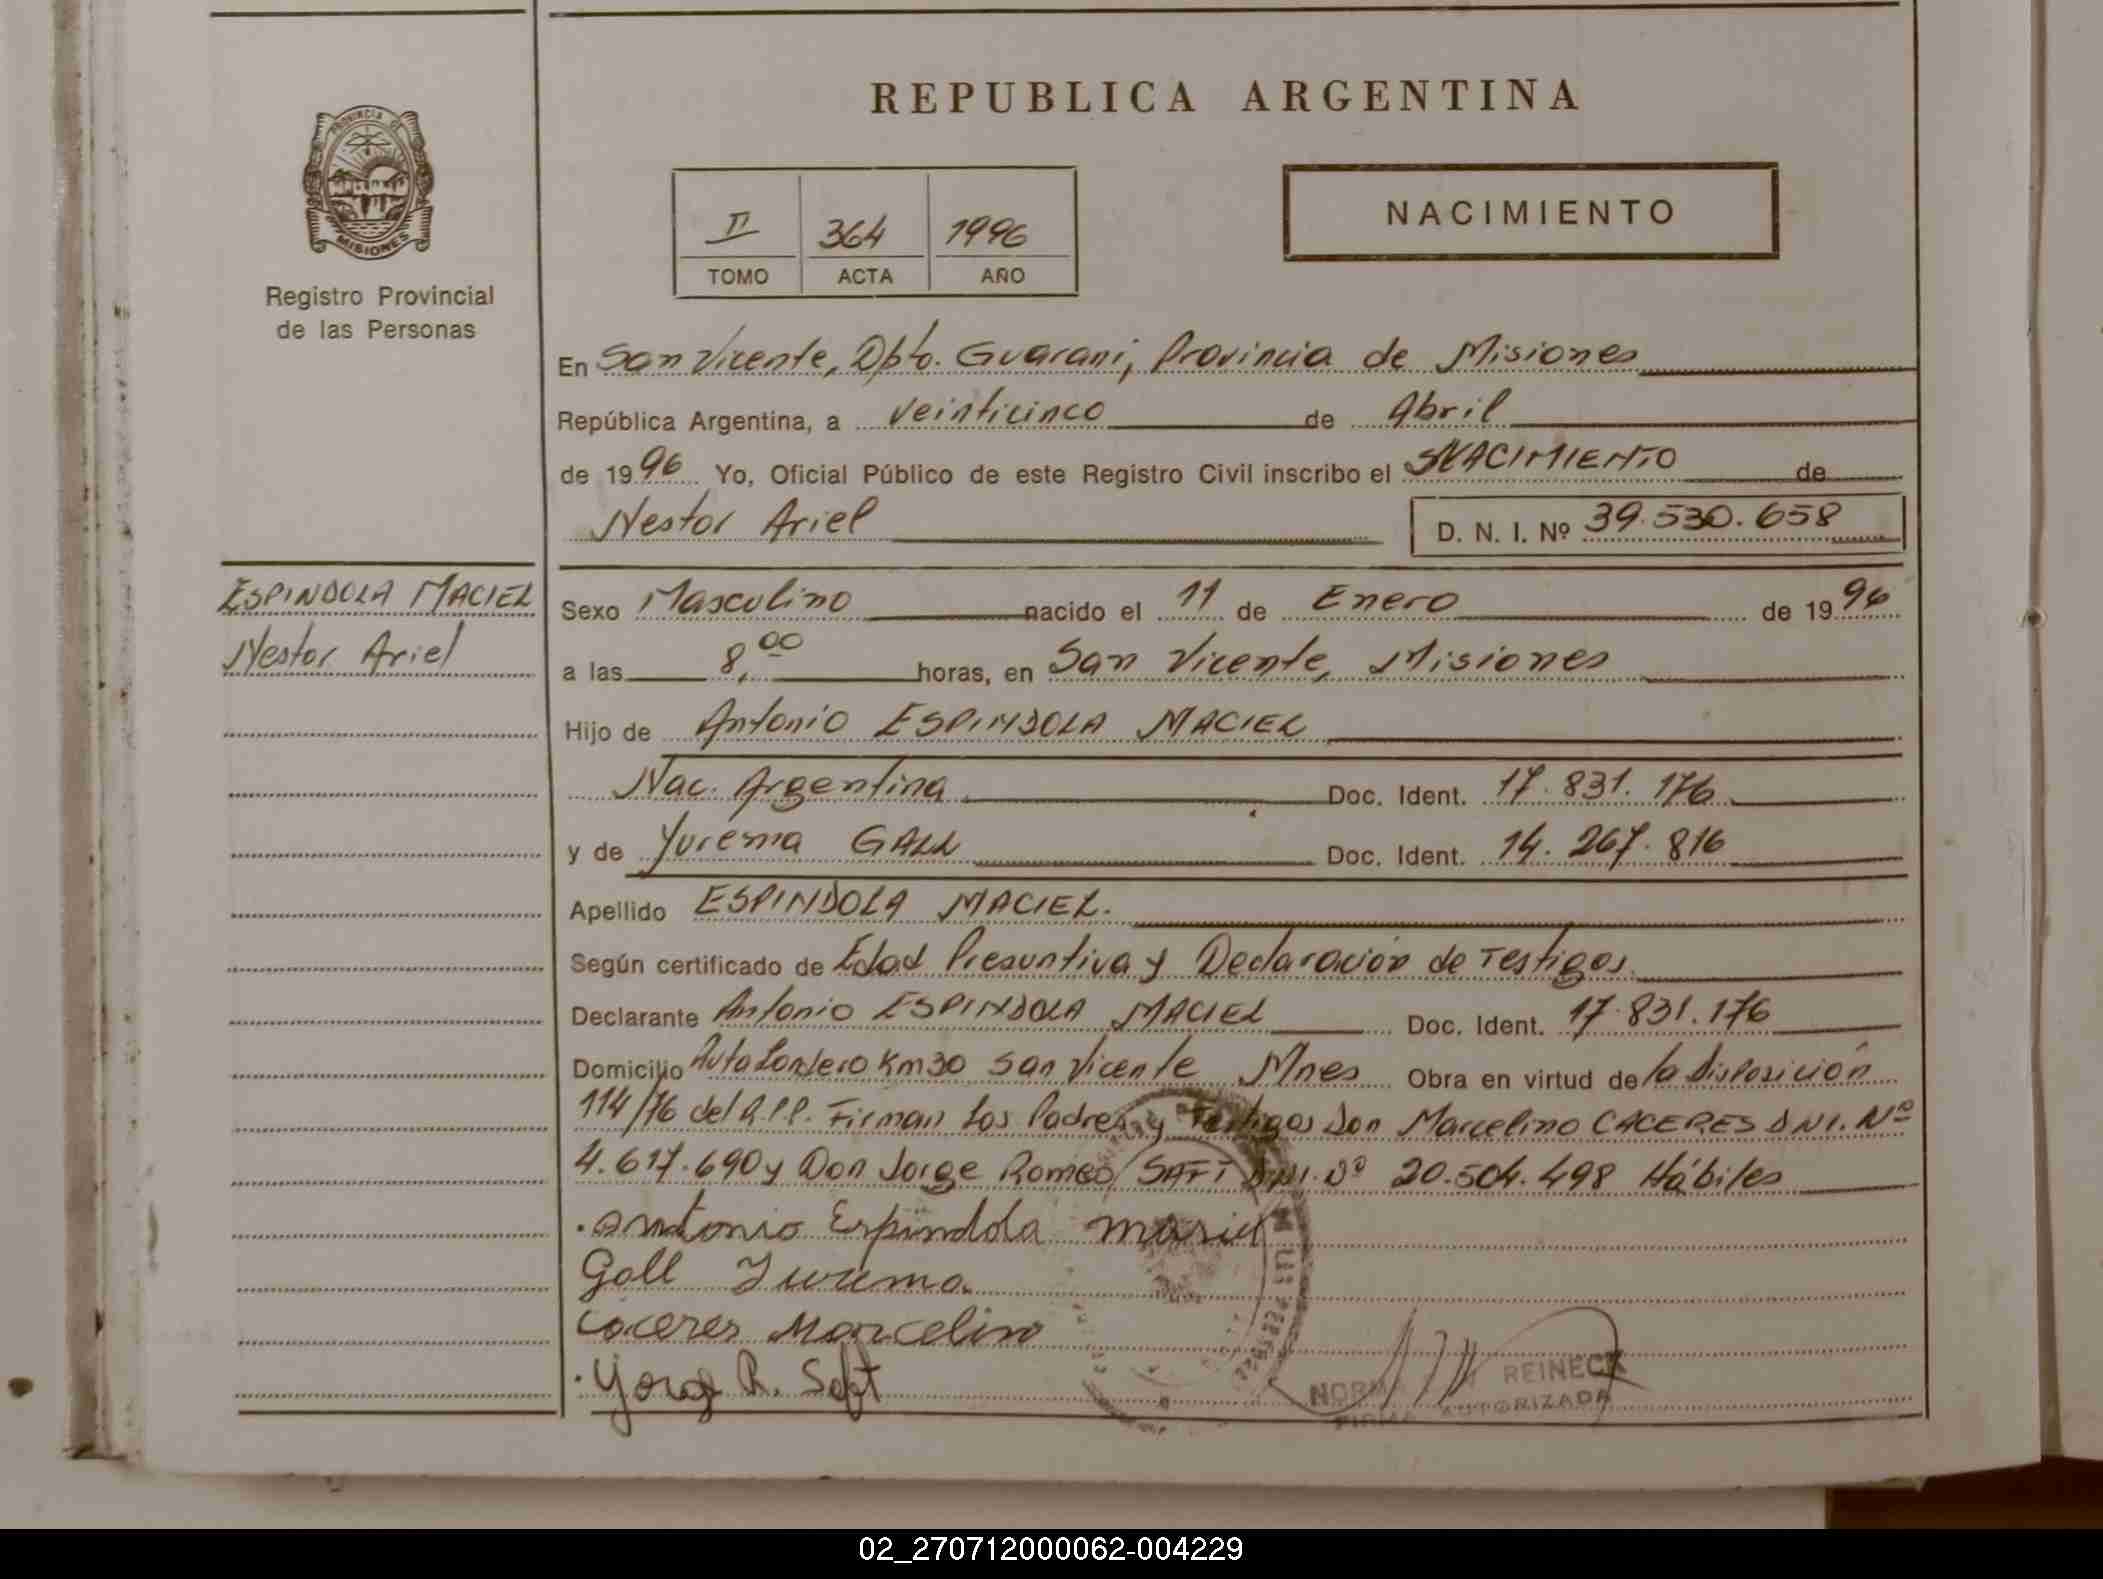 REPUBLICA ARGENTINA
PROVINCIA DE
MISIONES
Registro Provincial
de las Personas
II 364 1996
TOMO ACTA AÑO
NACIMIENTO
En San Vicente, Dpto. Guarani, Provincia de Misiones
República Argentina, a veinticinco de Abril
de 1996 Yo, Oficial Público de este Registro Civil inscribo el NACIMIENTO de
Nestor Ariel D. N. I. Nº 39.530.658
ESPINDOLA MACIEL
Nestor Ariel
Sexo Masculino nacido el 11 de Enero de 1996
a las 8,00 horas, en San Vicente, Misiones
Hijo de Antonio ESPINDOLA MACIEL
Nac. Argentina Doc. Ident. 17.831.176
y de Yurema GALL Doc. Ident. 14.267.816
Apellido ESPINDOLA MACIEL.
Según certificado de Edad Presuntiva y Declaración de Testigos
Declarante Antonio ESPINDOLA MACIEL Doc. Ident. 17.831.176
Domicilio Km30 San Vicente Mnes Obra en virtud de la Disposición
114/76 del R.P.P. Firman Los Padres y Testigos Don Marcelino CACERES DNI. Nº
4.617.690 y Don Jorge Romeo SAFT DNI. Nº 20.504.498 Hábiles
Antonio Espindola
Goll Iurema.
Caceres Marcelino
R. Saft
NORMA REINECK
FIRMA AUTORIZADA
02_270712000062-004229